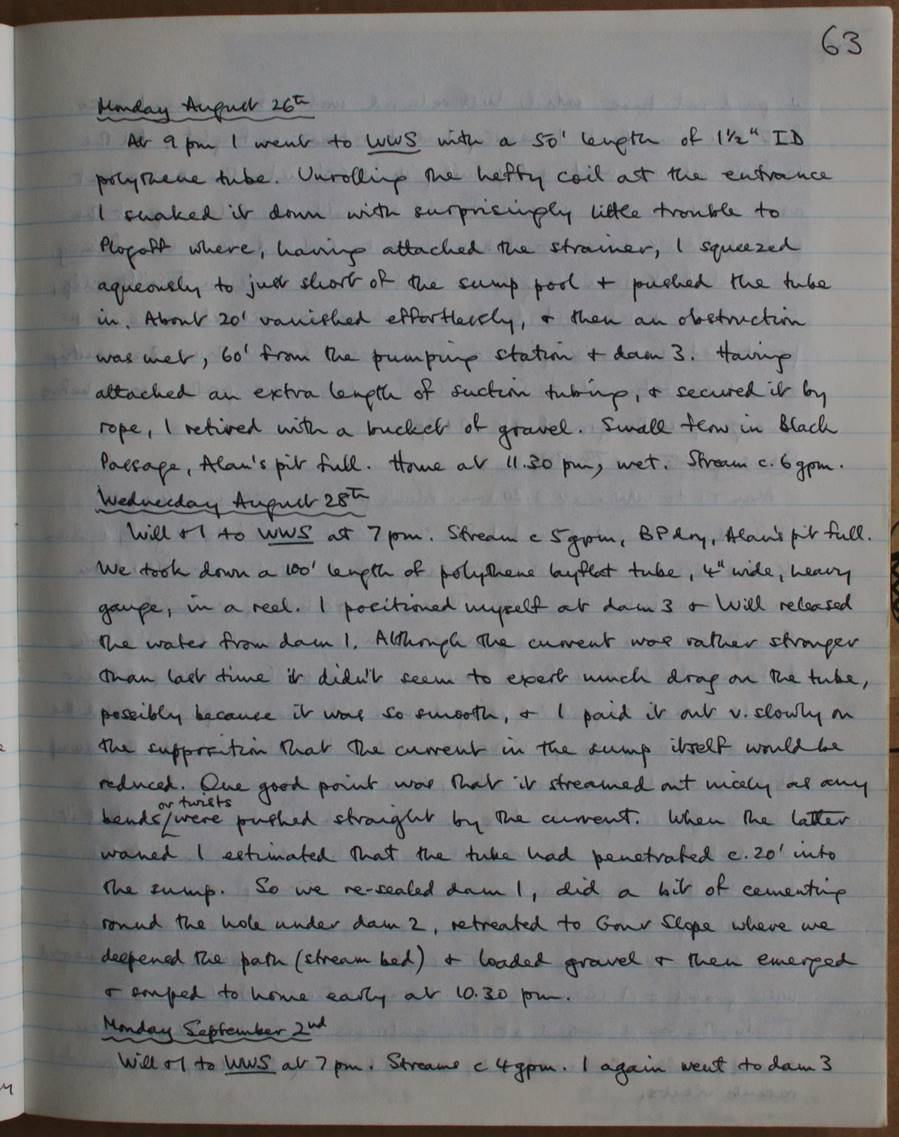 63
Monday August 26th
At 9 pm I went to WWS with a 50' length of 1½" ID
polythene tube. Unrolling the hefty coil at the entrance
I snaked it down with surprisingly little trouble to
Plogoff where, having attached the strainer, I squeezed
aqueously to just short of the sump pool + pushed the tube
in. About 20' vanished effortlessly, + then an obstruction
was met, 60' from the pumping station + dam 3. Having
attached an extra length of suction tubing, + secured it by
rope, I retired with a bucket of gravel. Small flow in Black
Passage, Alan's pit full. Home at 11.30 pm, wet. Stream c. 6 gpm.
Wednesday August 28th
Will + I to WWS at 7 pm. Stream c 5 gpm, BP dry, Alan's pit full.
We took down a 100' length of polythene layflat tube, 4" wide, heavy
gauge, in a reel. I positioned myself at dam 3 + Will released
the water from dam 1. Although the current was rather stronger
than last time it didn't seem to expert much drag on the tube,
possibly because it was so smooth, + I paid it out v. slowly on
the supposition that the current in the sump itself would be
reduced. One good point was that it streamed out nicely as any
bends/or twists were pushed straight by the current. When the latter
waned I estimated that the tube had penetrated c. 20' into
the sump. So we re-sealed dam 1, did a bit of cementing
round the hole under dam 2, retreated to Gour Slope where we
deepened the path (stream bed) + loaded gravel + then emerged
+ home early at 10.30 pm.
Monday September 2nd
Will + I to WWS at 7 pm. Stream c 4 gpm. I again went to dam 3